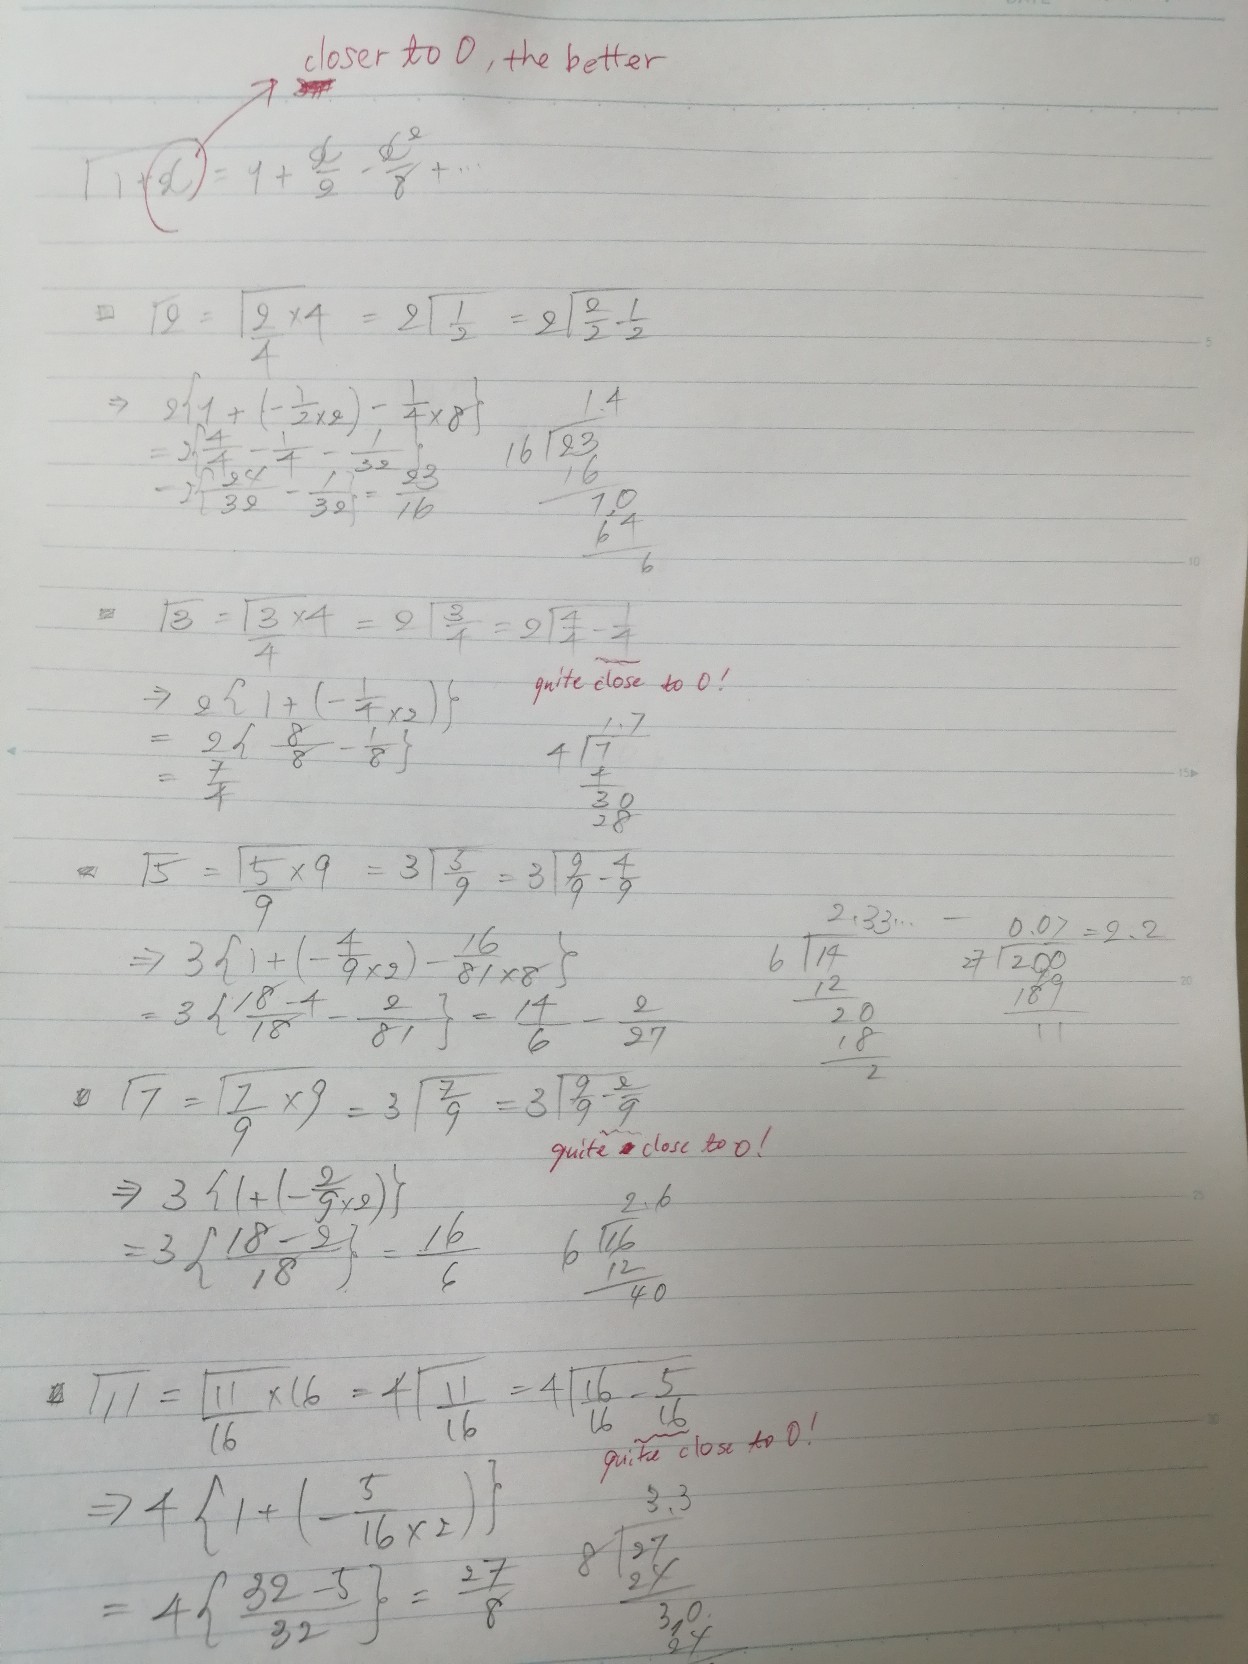 closer to 0, the better
√(1+x) = 1 + x/2 - x²/8 + ...
√2 = √(2/4 ×4) = 2√(1/2) = 2√(2/2 - 1/2)
⇒ 2{1 + (-1/(2×2)) - 1/(4×8)}
= 2{4/4 - 1/4 - 1/32}
= 2{24/32 - 1/32} = 23/16
1.4
16 √23
16
7.0
64
6
√3 = √(3/4 ×4) = 2√(3/4) = 2√(4/4 - 1/4)
quite close to 0!
⇒ 2{1 + (-1/(4×2))}
= 2{8/8 - 1/8}
= 7/4
1.7
4 √7
4
30
28
√5 = √(5/9 ×9) = 3√(5/9) = 3√(9/9 - 4/9)
⇒ 3{1 + (-4/(9×2)) - 16/(81×8)}
= 3{(18-4)/18 - 2/81} = 14/6 - 2/27
2.33... - 0.07 = 2.2
6 √14
12
20
18
2
27 √200
189
11
√7 = √(7/9 ×9) = 3√(7/9) = 3√(9/9 - 2/9)
quite close to 0!
⇒ 3{1 + (-2/(9×2))}
= 3{(18-2)/18} = 16/6
2.6
6 √16
12
40
√11 = √(11/16 ×16) = 4√(11/16) = 4√(16/16 - 5/16)
quite close to 0!
⇒ 4{1 + (-5/(16×2))}
= 4{(32-5)/32} = 27/8
3.3
8 √27
24
3.0
24